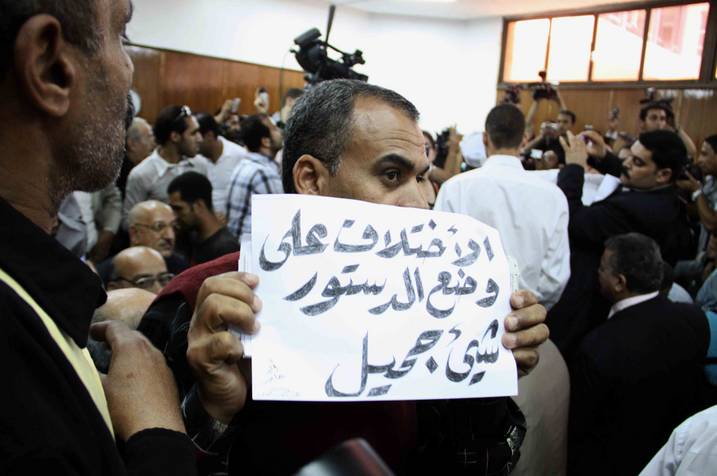 الأختلاف على
وضع الدستور
شيئ جميل